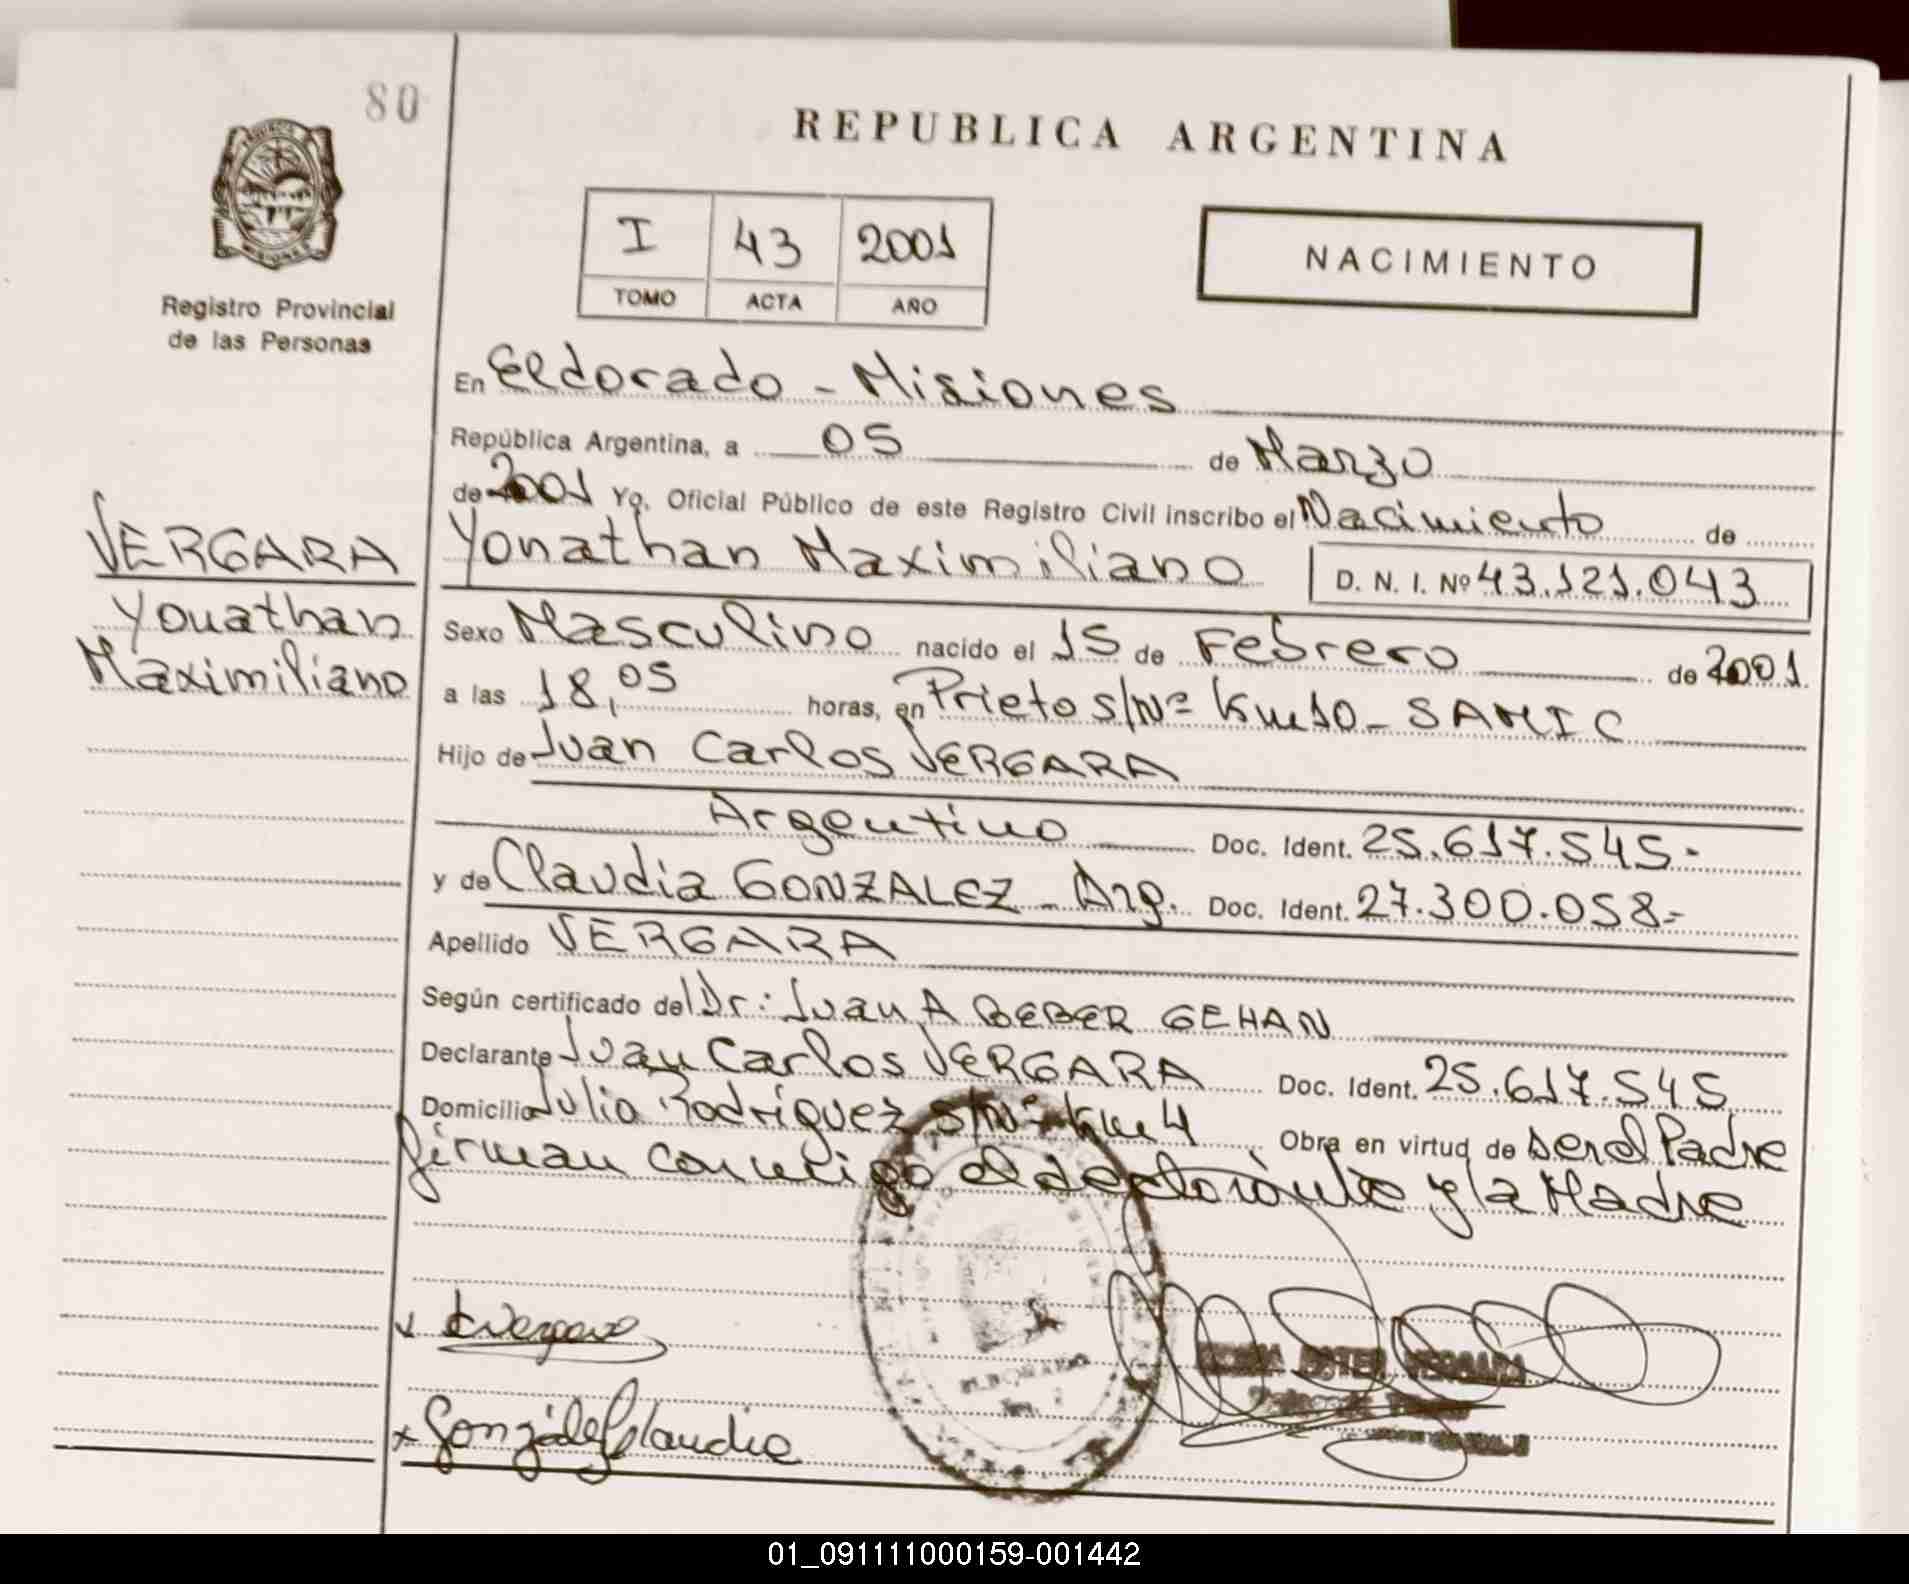 80
REPUBLICA ARGENTINA
I 43 2001
TOMO ACTA AÑO
NACIMIENTO
Registro Provincial
de las Personas
En Eldorado - Misiones
República Argentina, a 05 de Marzo
de 2001 Yo, Oficial Público de este Registro Civil inscribo el Nacimiento de
Yonathan Maximiliano D. N. I. Nº 43.121.043
VERGARA
Yonathan
Maximiliano
Sexo Masculino nacido el 15 de Febrero de 2001
a las 18,05 horas, en Prieto s/Nº Km 10 - SAMIC
Hijo de Juan Carlos VERGARA
Argentino Doc. Ident. 25.617.545.-
y de Claudia GONZALEZ - Arg. Doc. Ident. 27.300.058.-
Apellido VERGARA
Según certificado del Dr: Juan A BEBER GEHAN
Declarante Juan Carlos VERGARA Doc. Ident. 25.617.545
Domicilio Julio Rodríguez s/Nº Km 4 Obra en virtud de ser el Padre
firman conmigo el declarante y la Madre
ELDORADO
González Claudia
01_091111000159-001442